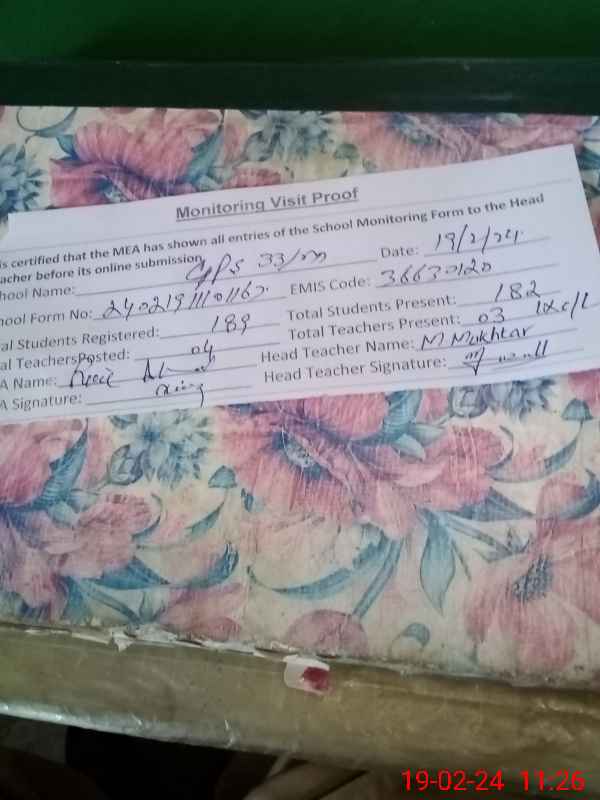 Monitoring Visit Proof
is certified that the MEA has shown all entries of the School Monitoring Form to the Head
acher before its online submission
hool Name: GPS 33/m Date: 19/2/24
hool Form No: EMIS Code: 36630120
al Students Registered: 189 Total Students Present: 182
al TeachersPosted: 04 Total Teachers Present: 03 1xc/L
A Name: Head Teacher Name: M Mukhtar
A Signature: Head Teacher Signature:
19-02-24 11:26